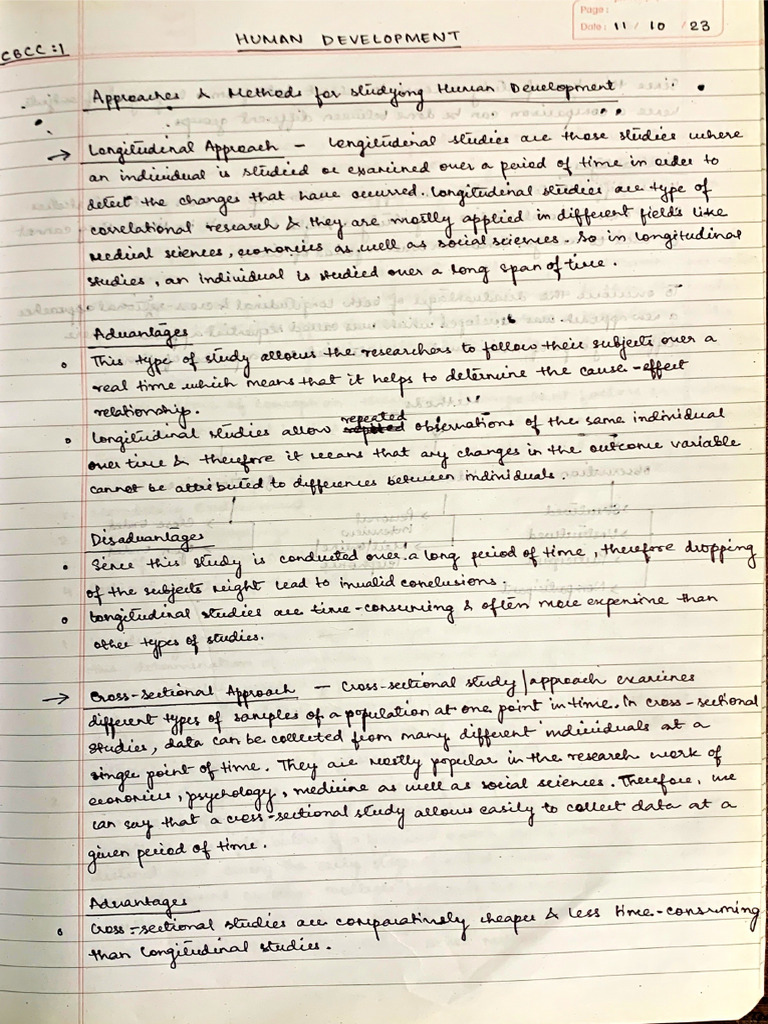 Page:
Date: 11 / 10 / 23
CBCC:1
HUMAN DEVELOPMENT
Approaches & Methods for studying Human Development
→ Longitudinal Approach – Longitudinal studies are those studies where
an individual is studied or examined over a period of time in order to
detect the changes that have occurred. Longitudinal studies are type of
correlational research & they are mostly applied in different fields like
medical sciences, economics as well as social sciences. So in longitudinal
studies, an individual is studied over a long span of time.
Advantages
• This type of study allows the researchers to follow their subjects over a
real time which means that it helps to determine the cause-effect
relationship.
• Longitudinal studies allow repeated observations of the same individual
over time & therefore it means that any changes in the outcome variable
cannot be attributed to differences between individuals.
Disadvantages
• Since this study is conducted over a long period of time, therefore dropping
of the subjects might lead to invalid conclusions.
• Longitudinal studies are time-consuming & often more expensive than
other types of studies.
→ Cross-sectional Approach – Cross-sectional study/approach examines
different types of samples of a population at one point in time. In cross-sectional
studies, data can be collected from many different individuals at a
single point of time. They are mostly popular in the research work of
economics, psychology, medicine as well as social sciences. Therefore, we
can say that a cross-sectional study allows easily to collect data at a
given period of time.
Advantages
• Cross-sectional studies are comparatively cheaper & less time-consuming
than longitudinal studies.